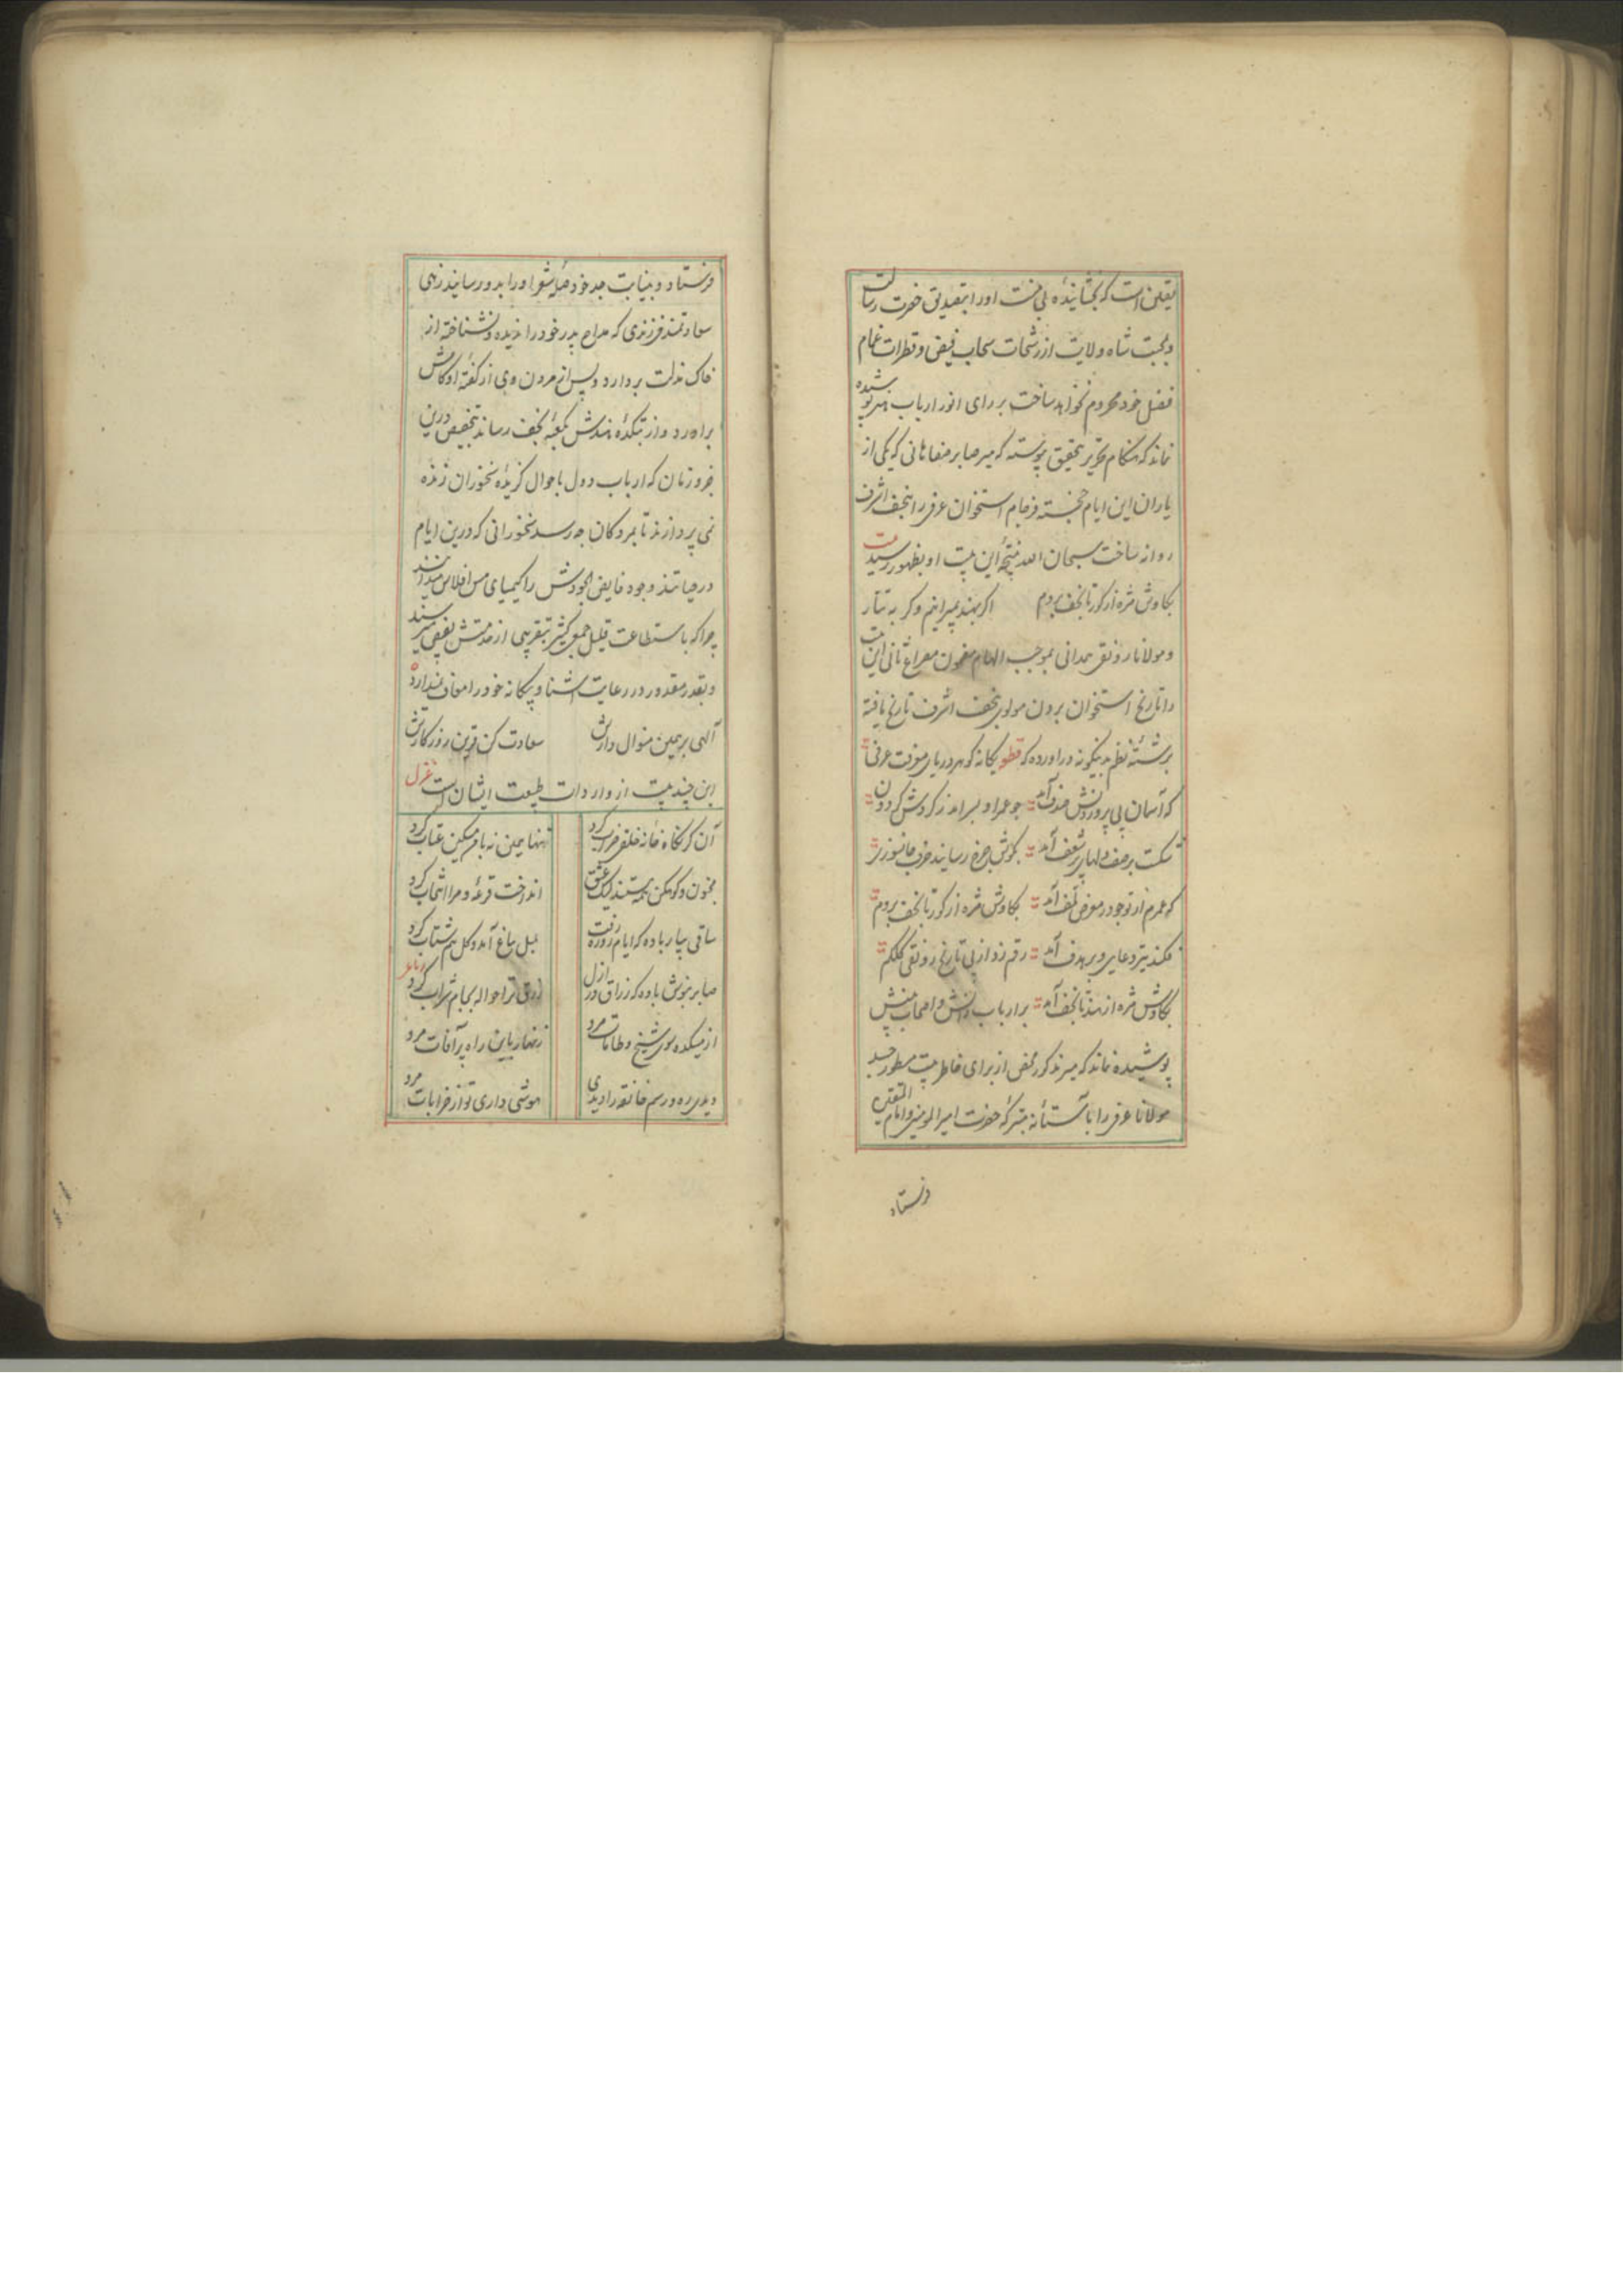 یقین است که بخشایندهٔ بی منت او را بتصدیق حضرت رسالت
و محبت شاه ولایت از رشحات سحاب فیض و قطرات غمام
فضل خود محروم نخواهد ساخت بر رای انور ارباب هنر پوشیده
نماند که هنگام تحریر بتحقیق پیوسته که میر صابر صفاهانی که یکی از
یاران این ایام خجسته فرجام استخوان عرفی را بنجف اشرف
روانه ساخت سبحان الله نتیجهٔ این بیت او بظهور رسید بیت
بکاوش مژه از گور تا نجف بروم اگر بهند بمیرانیم وگر به تتار
و مولانا رونقی همدانی بموجب الهام مضمون مصراع ثانی این بیت
را تاریخ استخوان بردن مولوی بنجف اشرف تاریخ یافته
برشتهٔ نظم بدینگونه در آورده که قطعه یگانه گوهر دریای معرفت عرفی
که آسمان پی پروردنش صدف آمد چو عمر او بسر آمد ز گردش گردون
شکست بر صف دلهای پر شعف آمد بگوش چرخ رسانید حرف جانسوزی
که عمرم از تو چو در معرض تلف آمد بکاوش مژه از گور تا نجف بروم
فکند تیر دعایی و بر هدف آمد رقم زد از پی تاریخ رونقی کلکم
بکاوش مژه از هند تا نجف آمد بر ارباب دانش و اصحاب بینش
پوشیده نماند که میر مذکور محض از برای خاطر بیت مسطور جسد
مولانا عرفی را با آستانهٔ متبرکهٔ حضرت امیرالمومنین و امام المتقین
فرستاد
فرستاد و بنیابت جد خود صلهٔ شعر او را بدو رسانید زهی
سعادتمند فرزندی که مداح پدر خود را ندیده و نشناخته از
خاک مذلت بردارد و پس از مردن وی از گفتهٔ او کامش
برآورد و از بتکدهٔ هندش بکعبهٔ نجف رساند بتخصیص درین
جزو زمان که ارباب دول باحوال گزیدهٔ سخنوران زنده
نمی پردازند تا بمردگان چه رسد سخنورانی که درین ایام
در حیاتند وجود فایض الجودش را کیمیای مس افلاس میدانند
چرا که با استطاعت قلیل جمع کثیر بتقریبی از خدمتش بفیضی میرسند
و بقدر مقدور در رعایت آشنا و بیگانه خود را معاف نمیدارد
الهی برهمین منوال دارش سعادت کن قرین روزگارش
این چند بیت از واردات طبیعت ایشان است غزل
آن کز نگاه خانهٔ خلقی خراب کرد تنها همین نه با من مسکین عتاب کرد
مجنون و کوهکن همه هستند لیک عشق انداخت قرعه و مرا انتخاب کرد
ساقی بیار باده که ایام روزه رفت بلبل بباغ آمد و گل هم شتاب کرد
صابر بنوش باده که رزاق در ازل رزق ترا حواله بجام شراب کرد رباعی
از میکده سوی شیخ و طامات مرو زنهار باین راه پر آفات مرو
دیدی ره و رسم خانقه را دیدی هوشی داری تو از خرابات مرو